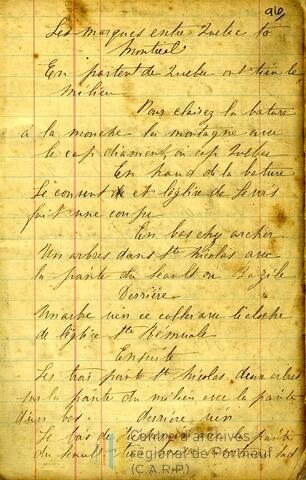 96,
Les marques entre Quebec to
Montreal
En partent de Quebec ont tien le
milieu
Pour clairez la bature
a la monche la montagne avec
le cap diament, ou cap Quebec
En haud de la bature
Le couvent et et l'église de Levis
fait une coupe
En bas chez archer
Un arbres dans Ste Nicolas avec
la pointe du Sault ou Bazile
Derriere
Un arbre vien ce coller avec le cloche
de l'église Ste
Ensuite
Les trois pointe St Nicolas deux arbres
sur la pointe du milieu avec la pointe
d'en bas. derriere vien
Le bas de
du sault
Centre d'archives
Régional de Portneuf
(C.A.R.P)